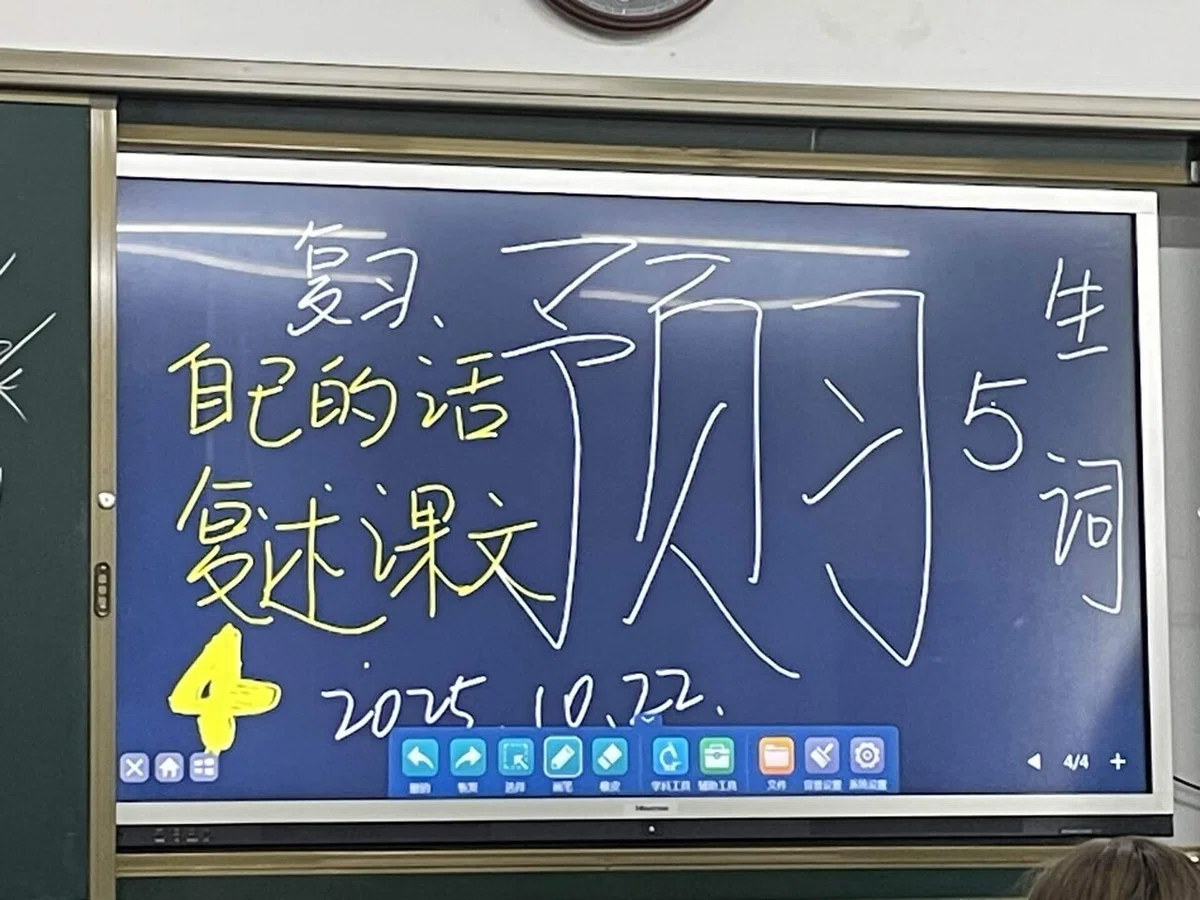 复习、
预习
生
5
词
自己的话
复述课文
4
2025.10.22.
撤销 恢复 选择 画笔 橡皮 学科工具 辅助工具 文件 背景设置 系统设置
4/4
Hisense